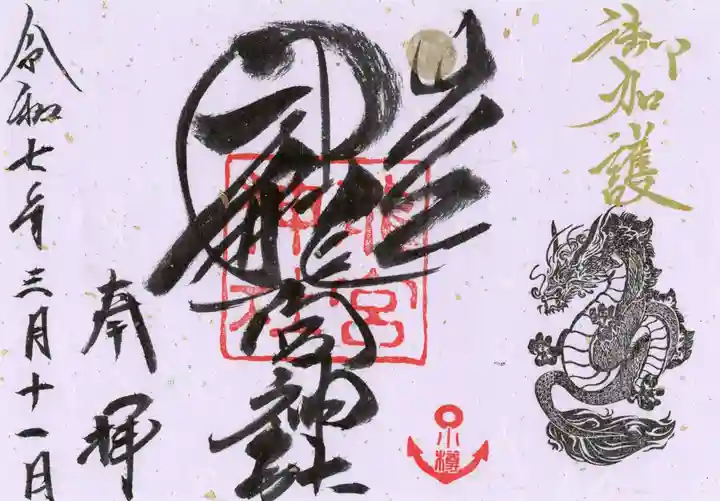 御加護
龍宮神社
龍宮神社
小樽
奉拝
令和七年三月十一日